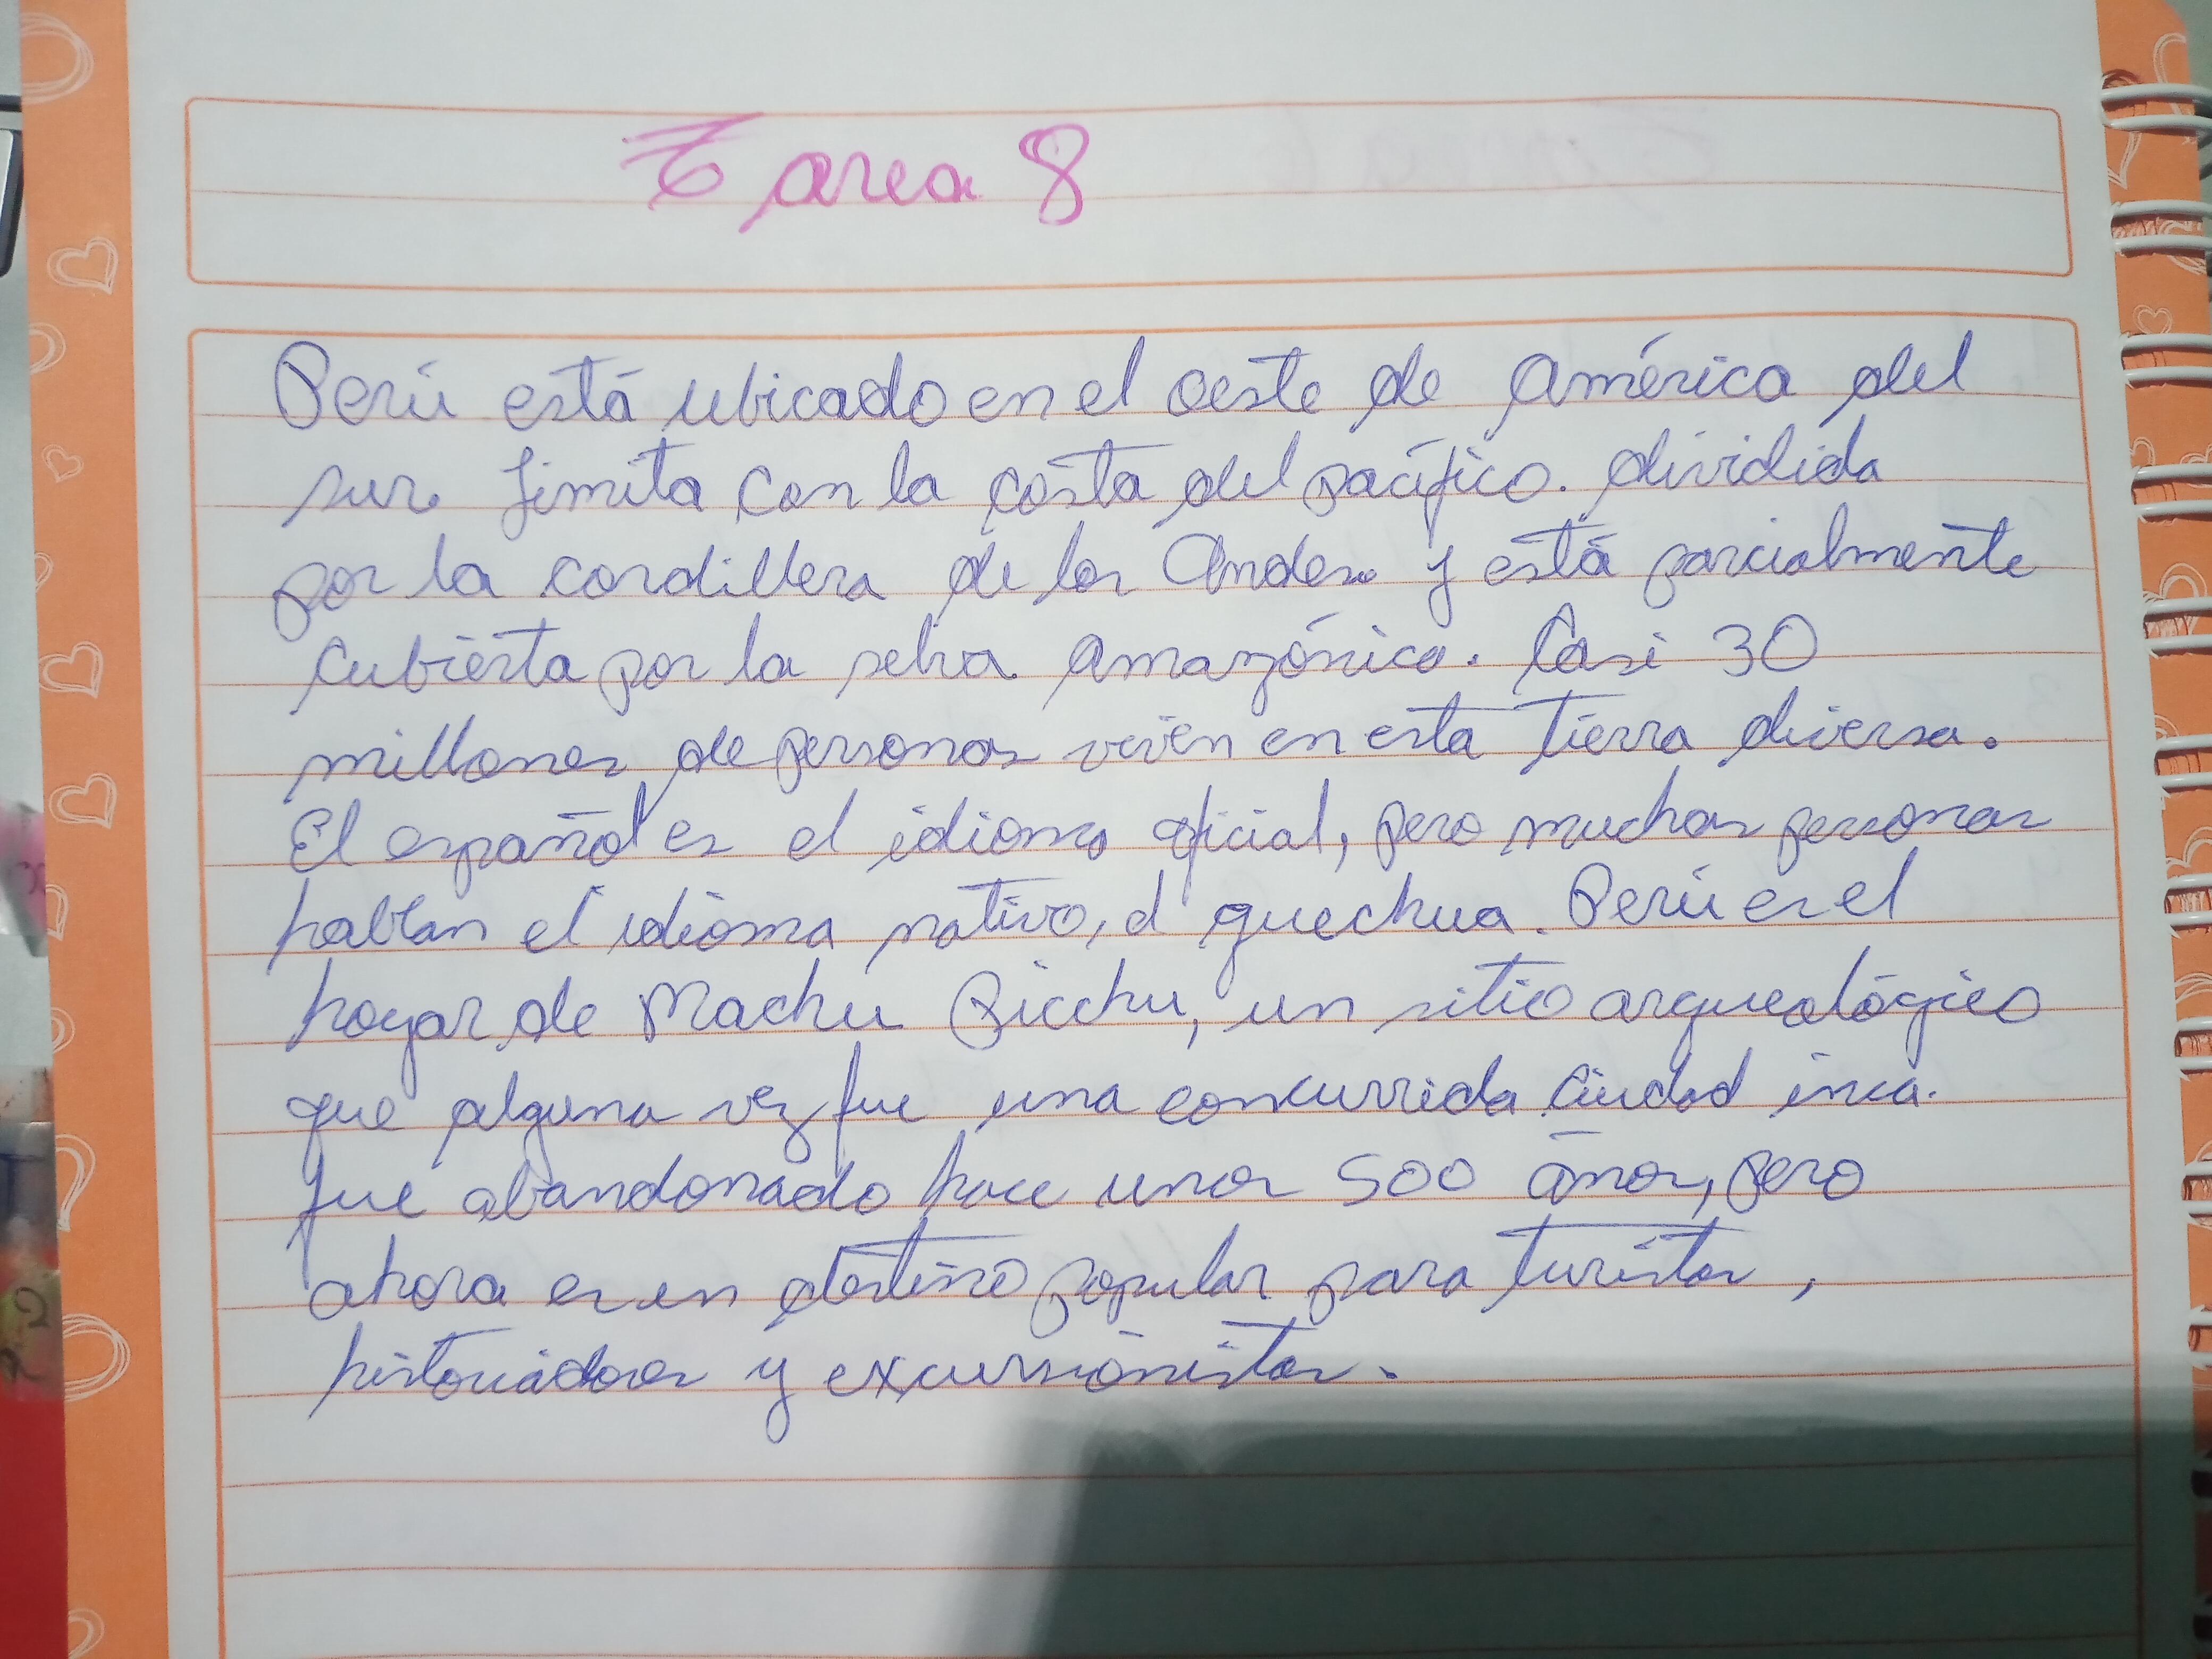 Tarea 8
Perú está ubicado en el oeste de América del
sur. limita con la costa del pacífico. dividida
por la cordillera de los Andes. y está parcialmente
cubierta por la selva amazónica. Casi 30
millones de personas viven en esta tierra diversa.
El español es el idioma oficial, pero muchas personas
hablan el idioma nativo, el quechua. Perú es el
hogar de Machu Picchu, un sitio arqueológico
que alguna vez fue una concurrida ciudad inca.
fue abandonado hace unos 500 años, pero
ahora es un destino popular para turistas,
historiadores y excursionistas.